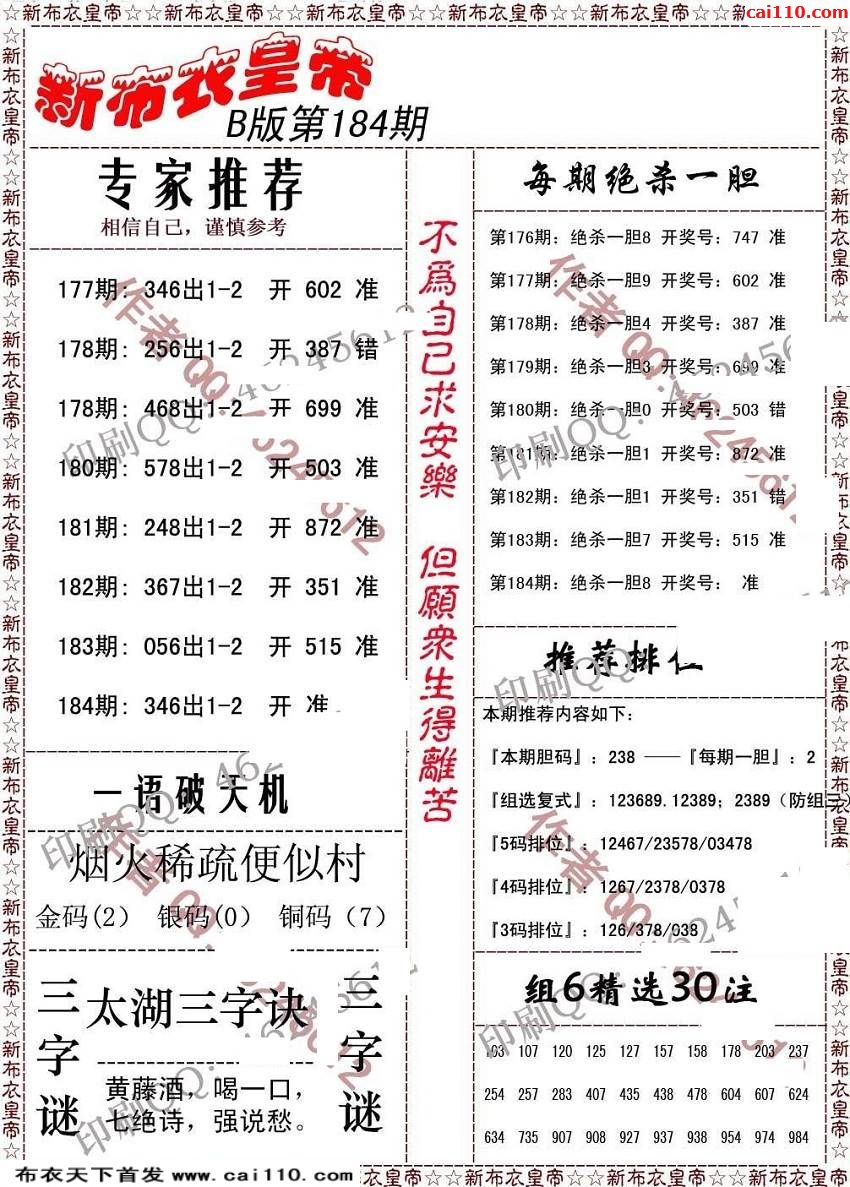 ☆☆新布衣皇帝☆☆新布衣皇帝☆☆新布衣皇帝☆☆新布衣皇帝☆☆新布衣皇帝☆☆新
cai110.com
新布衣皇帝
B版第184期
专家推荐
相信自己，谨慎参考
177期: 346出1-2 开 602 准
178期: 256出1-2 开 387 错
178期: 468出1-2 开 699 准
180期: 578出1-2 开 503 准
181期: 248出1-2 开 872 准
182期: 367出1-2 开 351 准
183期: 056出1-2 开 515 准
184期: 346出1-2 开 准
一语破天机
烟火稀疏便似村
金码(2) 银码(0) 铜码（7）
三字谜
太湖三字诀
黄藤酒，喝一口，
七绝诗，强说愁。
三字谜
不爲自己求安樂 但願衆生得離苦
每期绝杀一胆
第176期: 绝杀一胆8 开奖号: 747 准
第177期: 绝杀一胆9 开奖号: 602 准
第178期: 绝杀一胆4 开奖号: 387 准
第179期: 绝杀一胆3 开奖号: 699 准
第180期: 绝杀一胆0 开奖号: 503 错
第181期: 绝杀一胆1 开奖号: 872 准
第182期: 绝杀一胆1 开奖号: 351 错
第183期: 绝杀一胆7 开奖号: 515 准
第184期: 绝杀一胆8 开奖号: 准
推荐排
本期推荐内容如下:
『本期胆码』: 238 ——『每期一胆』: 2
『组选复式』: 123689.12389; 2389（防组三）
『5码排位』: 12467/23578/03478
『4码排位』: 1267/2378/0378
『3码排位』: 126/378/038
组6精选30注
103 107 120 125 127 157 158 178 203 237
254 257 283 407 435 438 478 604 607 624
634 735 907 908 927 937 938 954 974 984
布衣天下首发 www.cai110.com
衣皇帝☆☆新布衣皇帝☆☆新布衣皇帝☆☆新布衣皇帝☆☆